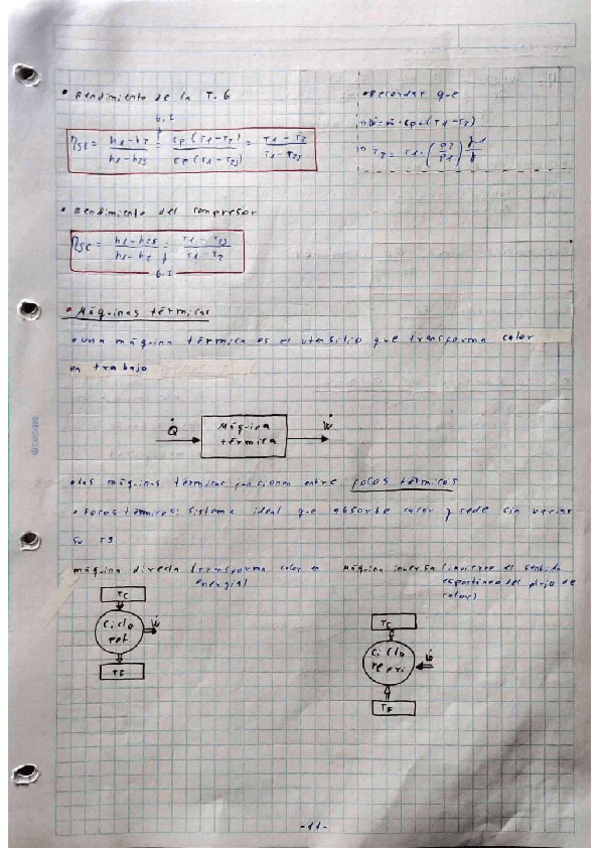 • Rendimiento de la T. G
• Recordar que
G.I
ηst = h1-h2 / h1-h2s = cp (T1-T2) / cp (T1-T2s) = T1-T2 / T1-T2s
T2 = T1 · (P2/P1)
• Rendimiento del compresor
ηsc = h1-h2s / h1-h2 = T1-T2s / T1-T2
G.I
• Máquinas térmicas
• una máquina térmica es el utensilio que transforma calor
en trabajo
Q̇
Máquina
térmica
Ẇ
• Las máquinas térmicas funcionan entre focos térmicos
• Focos térmicos: sistema ideal que absorbe calor y cede sin variar
su Tª
máquina directa (transforma calor en
energía)
Máquina inversa (invierte el sentido
espontáneo del flujo de
calor)
TC
Ciclo
pot
Ẇ
TF
TC
Ciclo
refri
Ẇ
TF
-11-